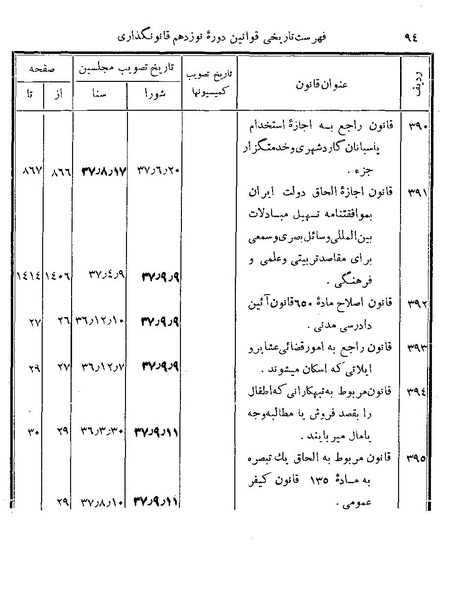 ۹۴ فهرست تاریخی قوانین دورۀ نوزدهم قانونگذاری
ردیف عنوان قانون تاریخ تصویب کمیسیونها تاریخ تصویب مجلسین صفحه
شورا سنا از تا
۳۹۰ قانون راجع به اجازۀ استخدام
پاسبانان گارد شهری و خدمتگزار
جزء . ۳۷٫۶٫۲۰ ۳۷٫۸٫۱۷ ۸۶۶ ۸۶۷
۳۹۱ قانون اجازۀ الحاق دولت ایران
بموافقتنامه تسهیل مبادلات
بین‌المللی وسائل بصری و سمعی
برای مقاصد تربیتی و علمی و
فرهنگی . ۳۷٫۹٫۹ ۳۷٫۴٫۹ ۱۴۰۶ ۱۴۱۴
۳۹۲ قانون اصلاح مادۀ ۶۵۰ قانون آئین
دادرسی مدنی . ۳۷٫۹٫۹ ۳۶٫۱۲٫۱۰ ۲۶ ۲۷
۳۹۳ قانون راجع به امور قضائی عشایر و
ایلاتی که اسکان میشوند . ۳۷٫۹٫۹ ۳۶٫۱۲٫۷ ۲۷ ۲۹
۳۹۴ قانون مربوط به تبهکارانی که اطفال
را بقصد فروش یا مطالبه وجه
یا مال میربایند . ۳۷٫۹٫۱۱ ۳۶٫۳٫۳۰ ۲۹ ۳۰
۳۹۵ قانون مربوط به الحاق یك تبصره
به مادۀ ۱۳۵ قانون کیفر
عمومی . ۳۷٫۹٫۱۱ ۳۷٫۸٫۱۰ ۲۹